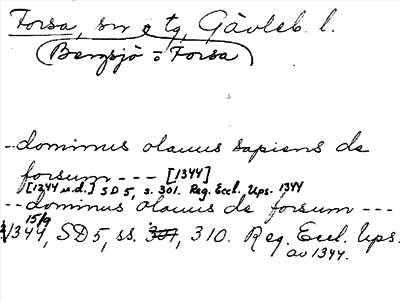 Forsa, sn o tg, Gävleb. l.
(Bergsjö o Forsa)
--dominus olauus sapiens de
forsum --- [1344]
[1344 u.d.] SD 5, s. 301. Reg. Eccl. Ups. 1344
--dominus olauus de forsum ---
15/9
1344, SD 5, ss. 301, 310. Reg. Eccl. Ups.
av 1344.